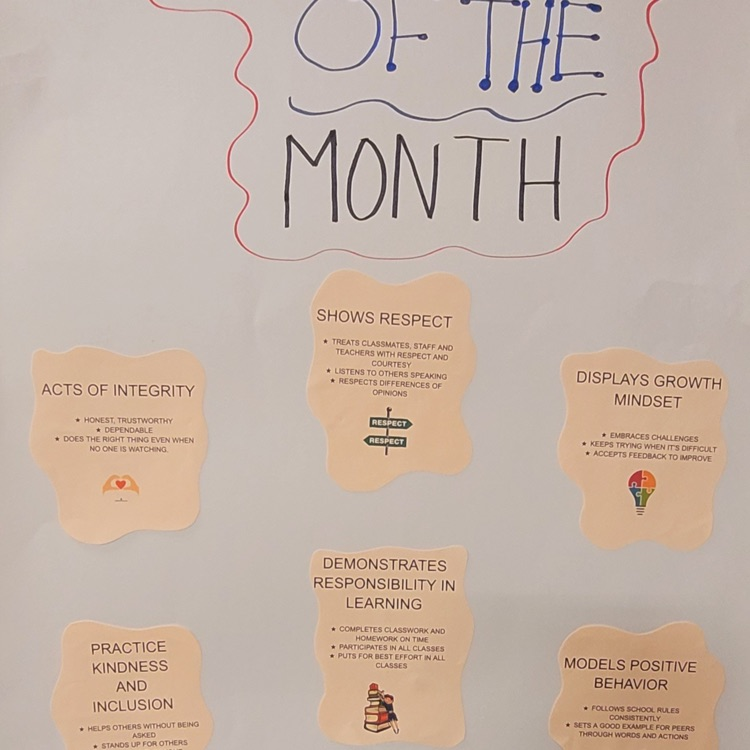 OF THE
MONTH
SHOWS RESPECT
★ TREATS CLASSMATES, STAFF AND
TEACHERS WITH RESPECT AND
COURTESY
★ LISTENS TO OTHERS SPEAKING
★ RESPECTS DIFFERENCES OF
OPINIONS
RESPECT
RESPECT
ACTS OF INTEGRITY
★ HONEST, TRUSTWORTHY
★ DEPENDABLE
★ DOES THE RIGHT THING EVEN WHEN
NO ONE IS WATCHING.
DISPLAYS GROWTH
MINDSET
★ EMBRACES CHALLENGES
★ KEEPS TRYING WHEN IT'S DIFFICULT
★ ACCEPTS FEEDBACK TO IMPROVE
DEMONSTRATES
RESPONSIBILITY IN
LEARNING
★ COMPLETES CLASSWORK AND
HOMEWORK ON TIME
★ PARTICIPATES IN ALL CLASSES
★ PUTS FOR BEST EFFORT IN ALL
CLASSES
PRACTICE
KINDNESS
AND
INCLUSION
★ HELPS OTHERS WITHOUT BEING
ASKED
★ STANDS UP FOR OTHERS
MODELS POSITIVE
BEHAVIOR
★ FOLLOWS SCHOOL RULES
CONSISTENTLY
★ SETS A GOOD EXAMPLE FOR PEERS
THROUGH WORDS AND ACTIONS